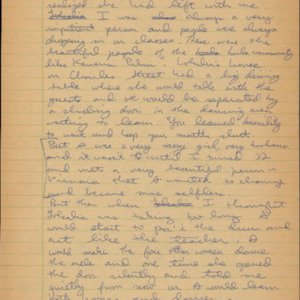 realized she had left with me
I was always a very
impatient person and people were always
dropping in on classes. These were the
beautiful people of the community
like
on Charles Street had a big dining
table where she would talk with the
guests and we would be separated by
a sliding door in the dancing area
waiting to learn. You learned humility
to wait and keep you mouth shut.
But I was a very angry girl, very
and it wasn't until I turned 32
and met a very beautiful person
that I wanted to change
and become more selfless.
But then when I thought
was taking too long I
would start to the door and
act like the teacher. I
would make the other women dance
the mele and one time she opened
the door silently and told me
quietly from now on I would learn